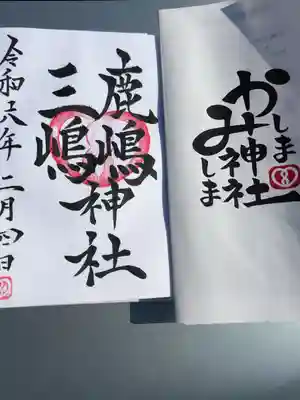 鹿嶋神社
三嶋
令和六年 二月四日
かしま
みしま
神社